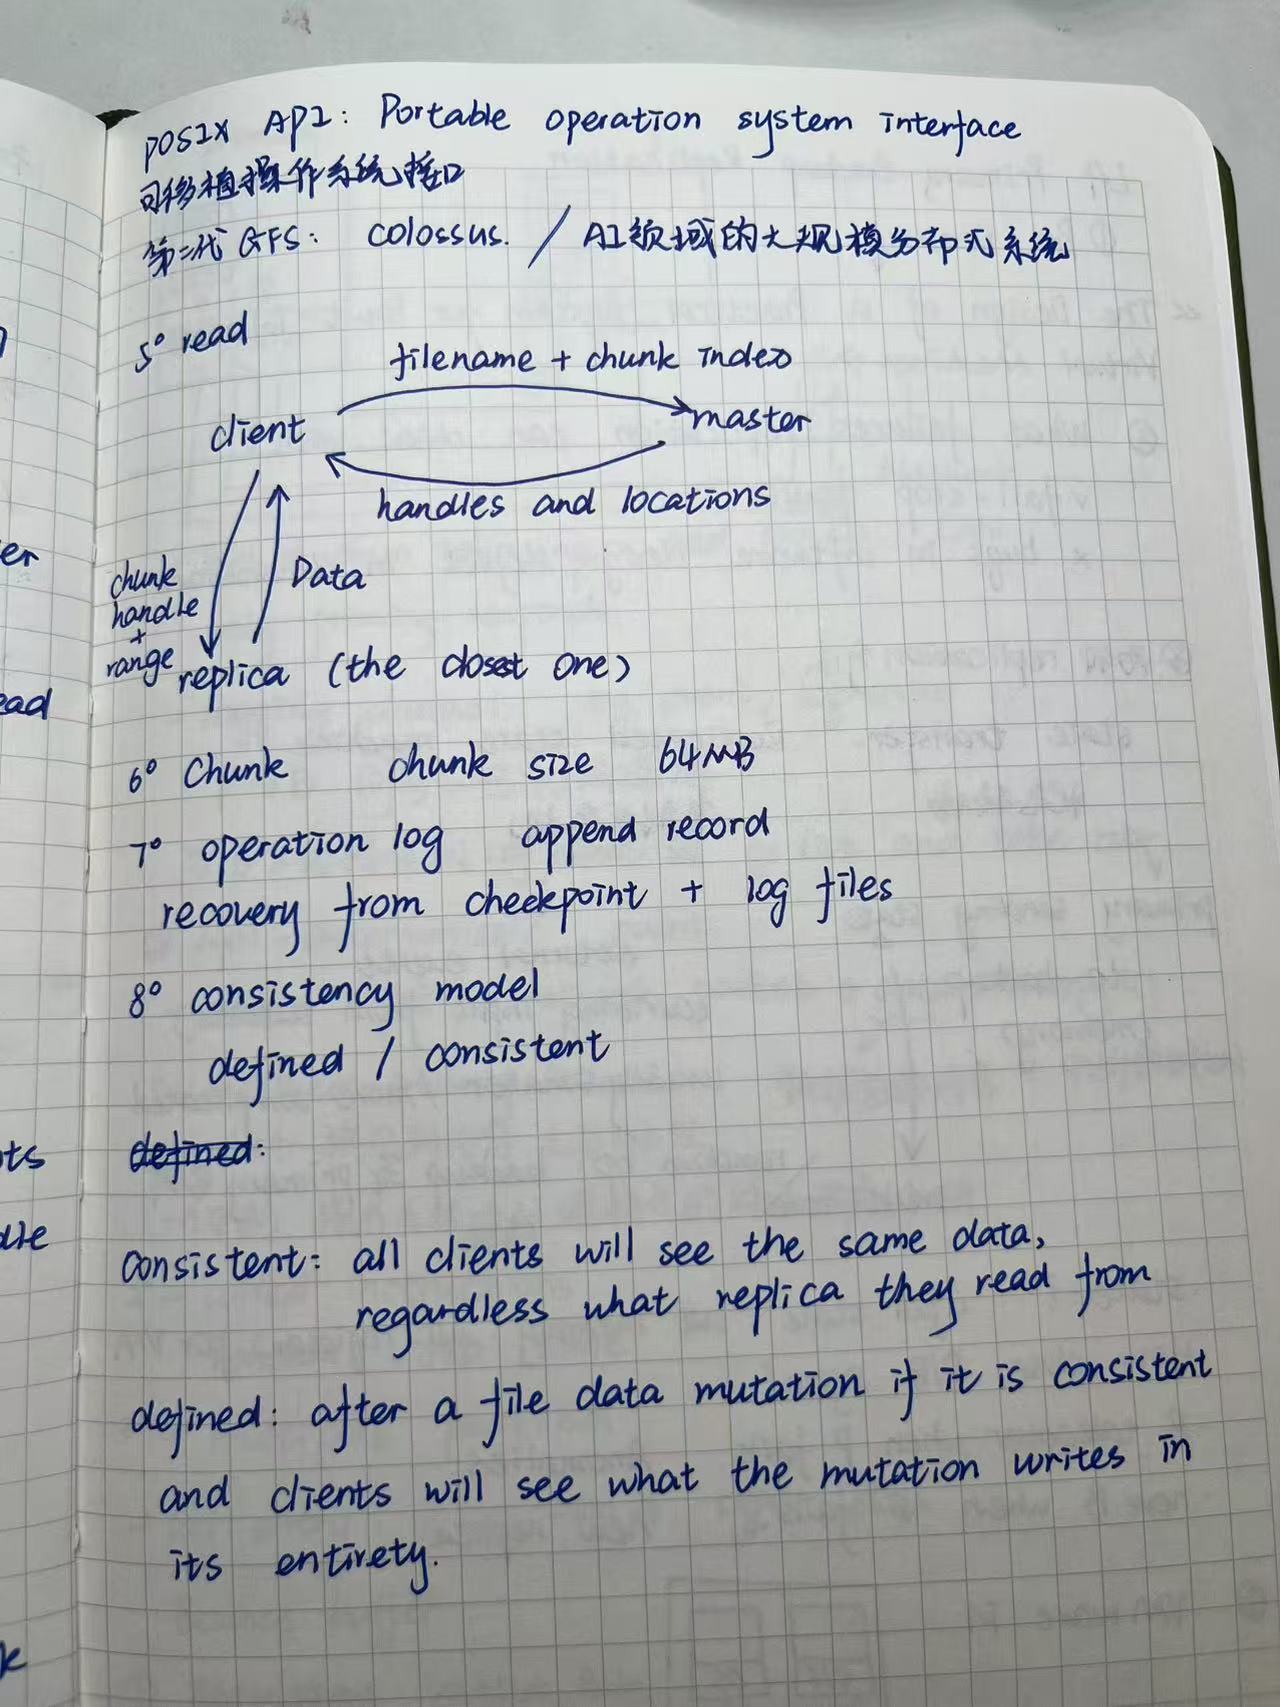 POSIX API: Portable operation system interface
可移植操作系统接口
第二代 GFS: colossus. / AI领域的大规模分布式系统
5° read
filename + chunk index
client
master
handles and locations
chunk
handle
+
range
Data
replica (the closest one)
6° Chunk chunk size 64MB
7° operation log append record
recovery from checkpoint + log files
8° consistency model
defined / consistent
defined:
consistent: all clients will see the same data,
regardless what replica they read from
defined: after a file data mutation if it is consistent
and clients will see what the mutation writes in
its entirety.
er
ead
ts
dle
k